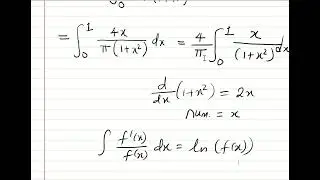 = ∫₀¹ 4x / π(1+x²) dx = 4/π ∫₀¹ x / (1+x²) dx
d/dx (1+x²) = 2x
num. = x
∫ f'(x)/f(x) dx = ln (f(x))